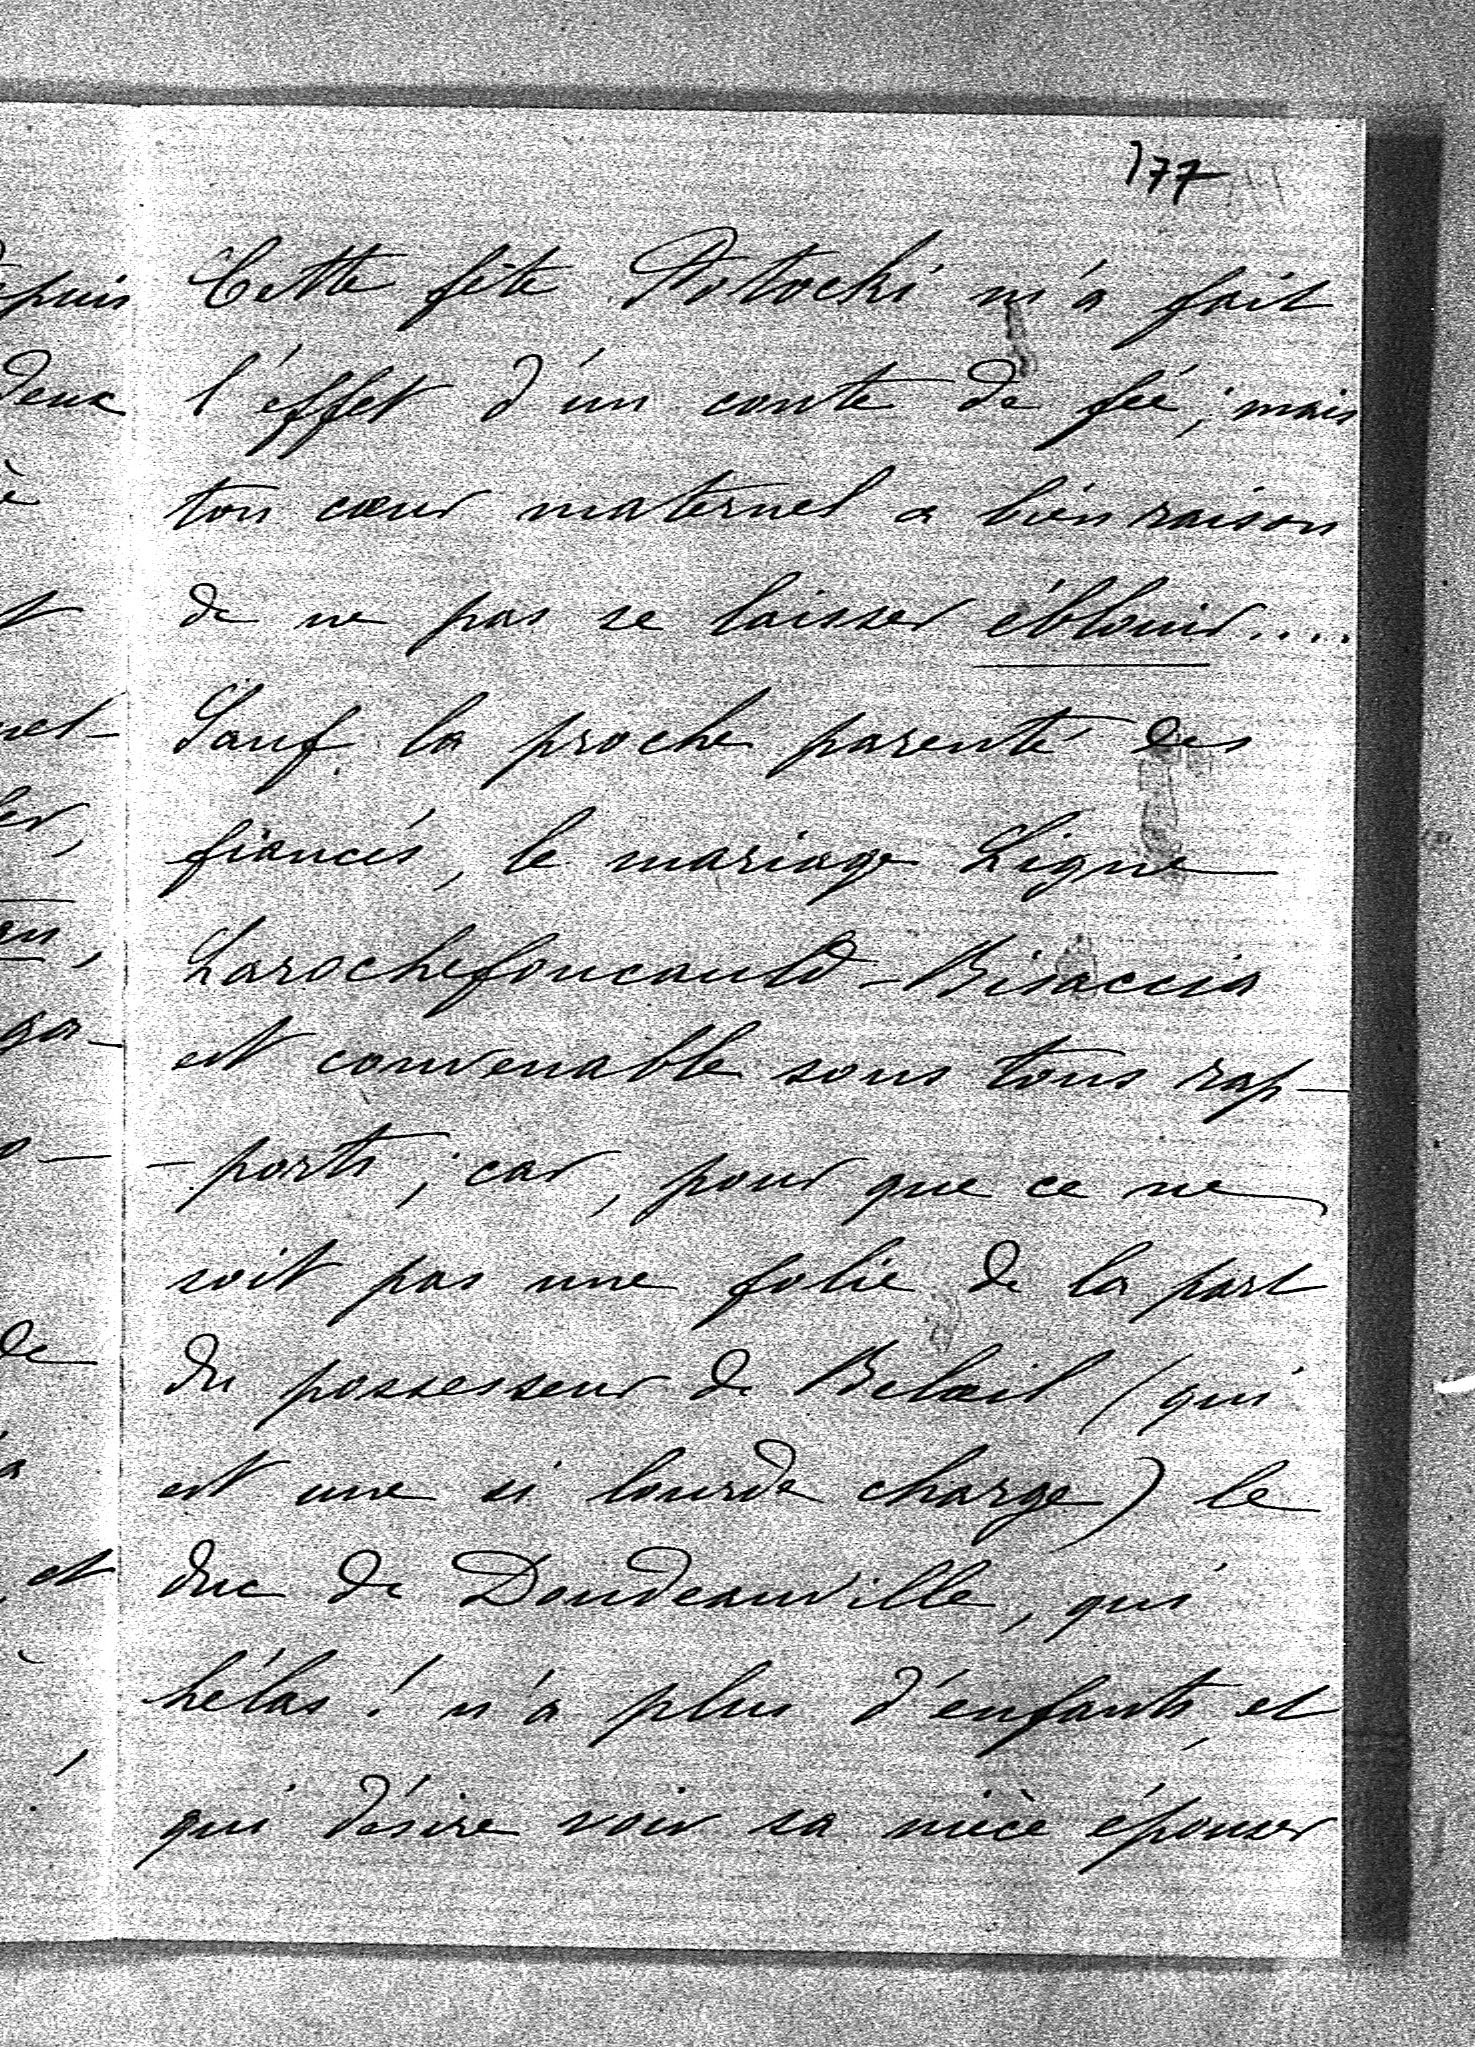 177
Cette fête Potocki m'a fait
l'effet d'un conte de fée; mais
ton cœur maternel a bien raison
de ne pas se laisser éblouir.....
Sauf la proche parenté des
fiancés, le mariage Ligne
Larochefoucauld-Bisaccia
est convenable sous tous rap-
-ports; car, pour que ce ne
soit pas une folie de la part
du possesseur de Belœil (qui
est une si lourde charge) le
duc de Doudeauville, qui
hélas! n'a plus d'enfants, et
qui désire voir sa nièce épouser
epuis
deux
à
t
net-
ler,
de
et